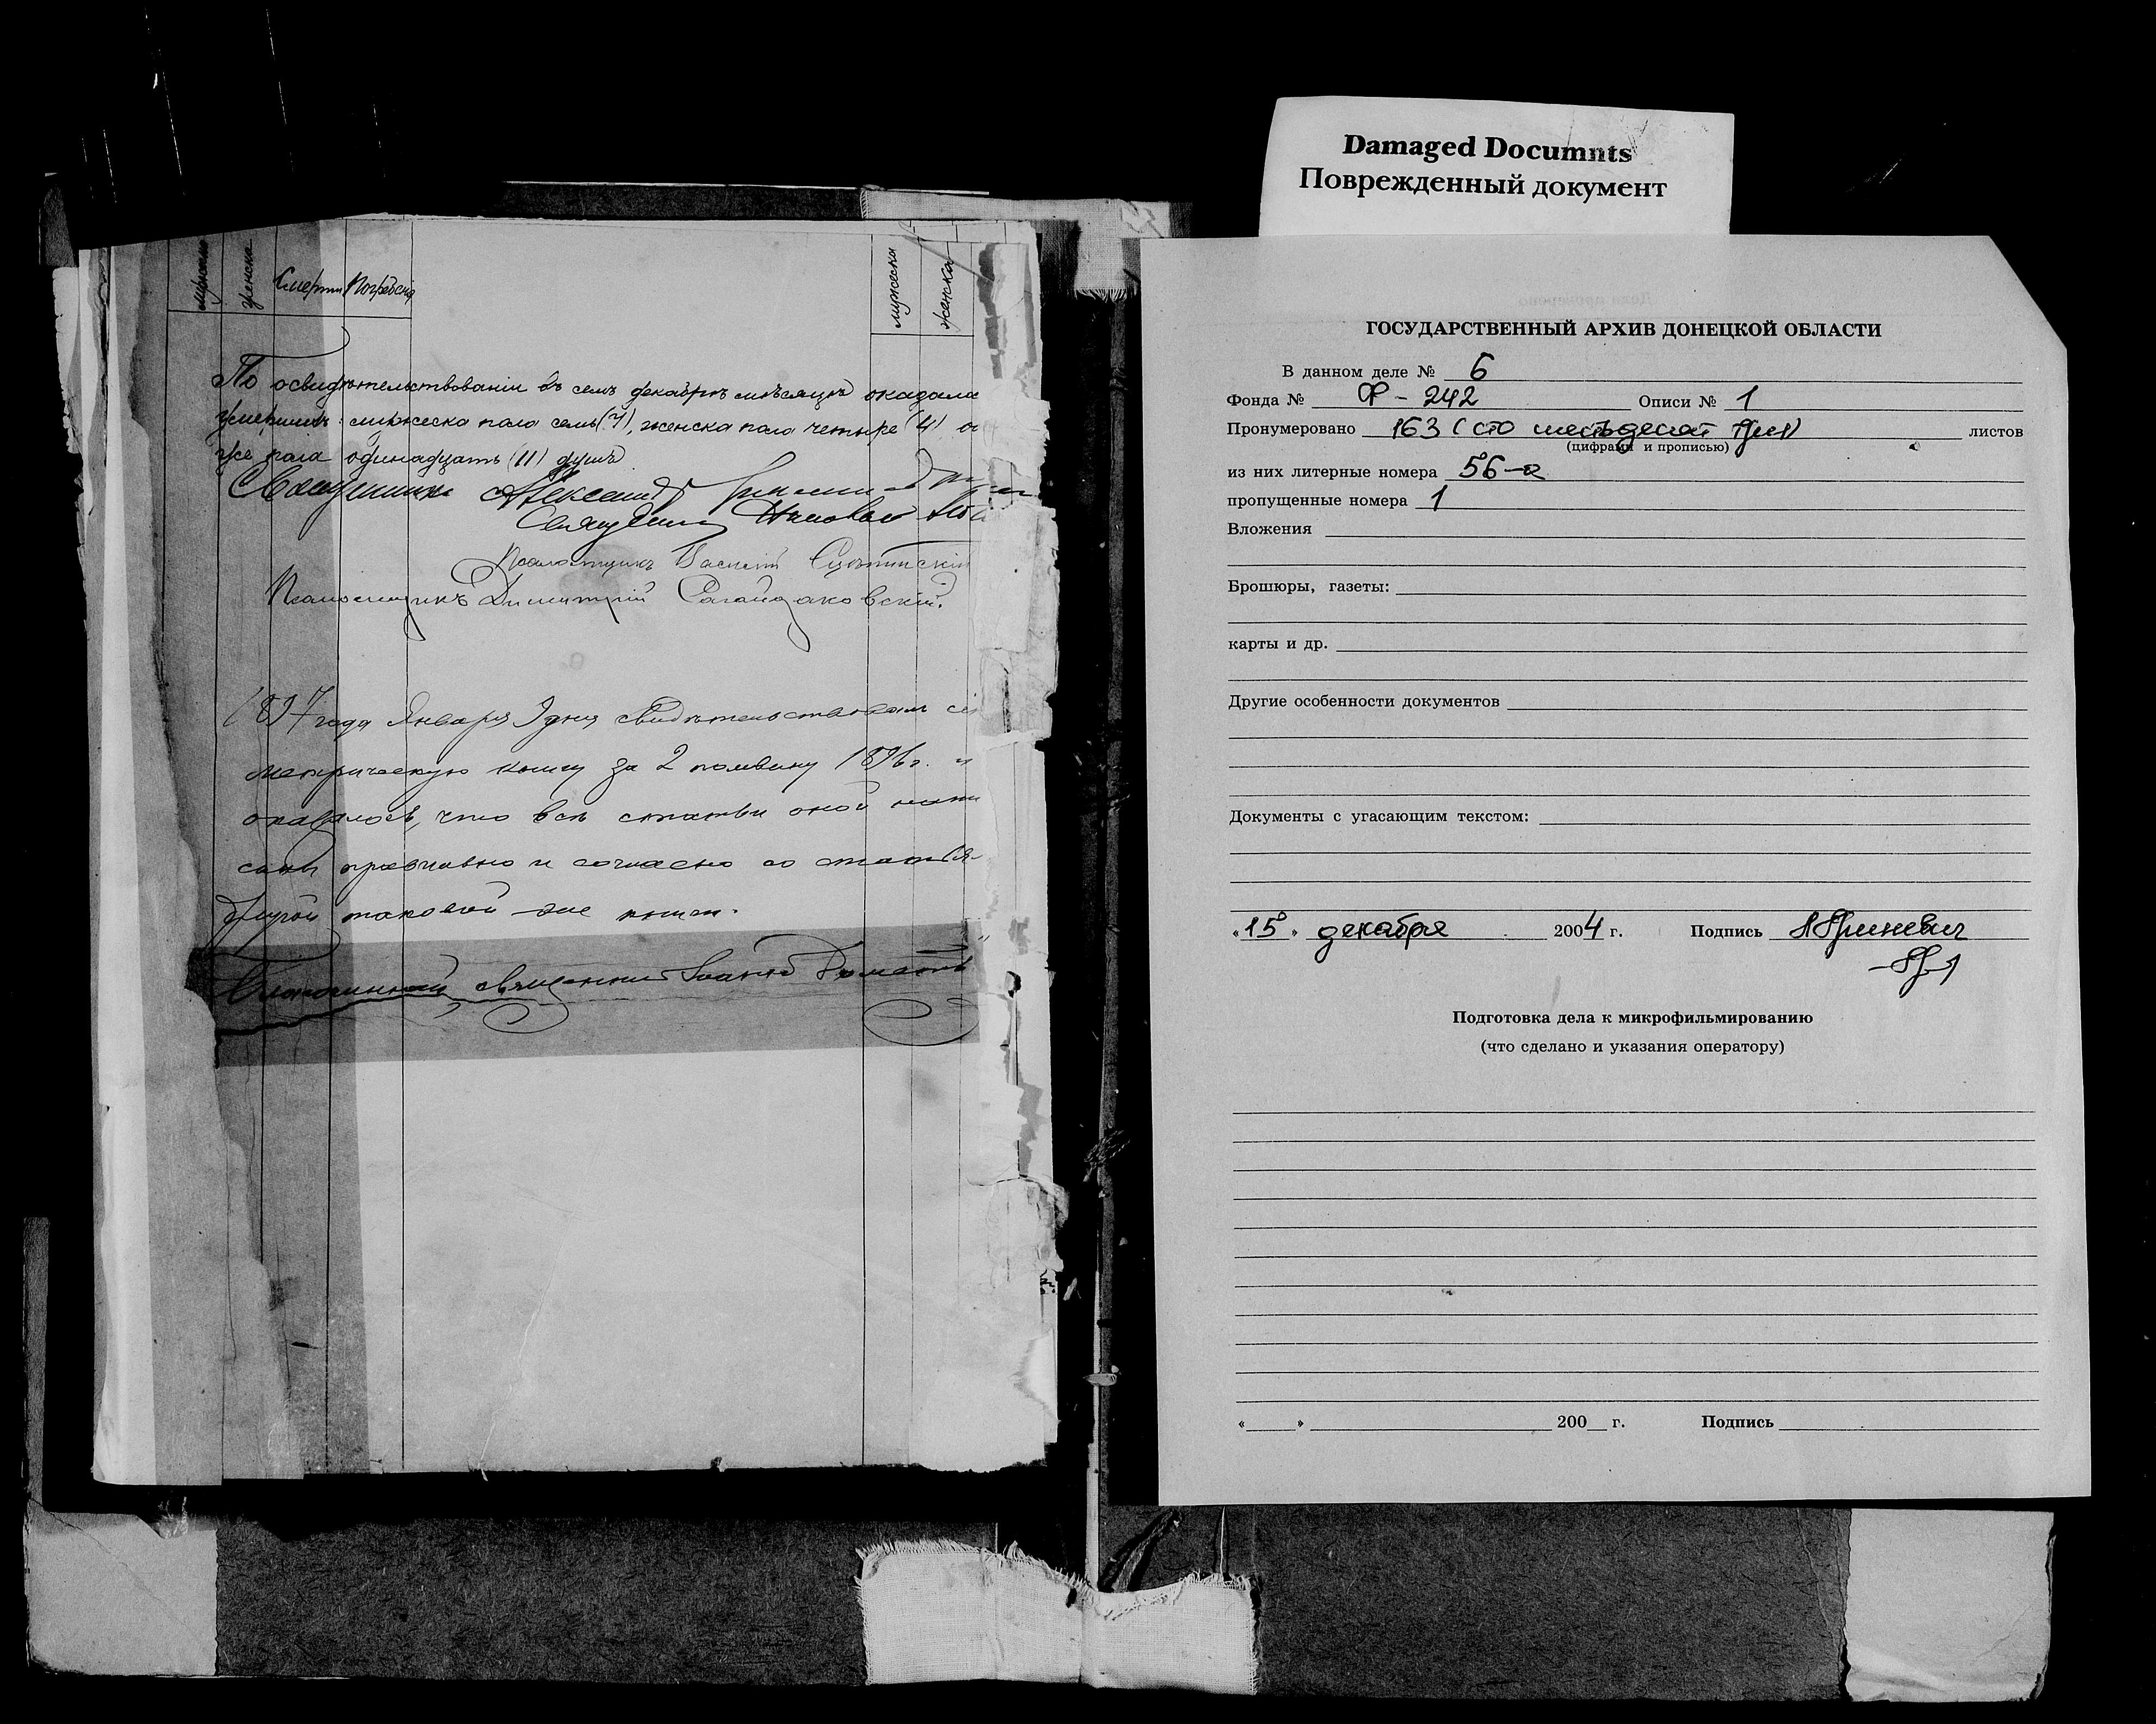 Damaged Documnts
Поврежденный документ
мужеска
женска
Смерти
Погребения
мужеска
женска
По освидѣтельствованіи въ семъ декабрѣ мѣсяцѣ оказалос
умершихъ: мужеска пола семь (7), женска пола четыре (4), о
его пола одинадцать (11) душъ
Священникъ Александръ
Священникъ
Псаломщикъ Василій
Псаломщикъ Димитрій Сагайдаковскій.
1897 года Января 9 дня свидѣтельствовалъ сію
метрическую книгу за 2 половину 1896 г. и
оказалось, что всѣ статьи оной напи
саны правильно и согласно со статья
другой таковой же книги.
Благочинный, священникъ Іоаннъ
ГОСУДАРСТВЕННЫЙ АРХИВ ДОНЕЦКОЙ ОБЛАСТИ
В данном деле № 6
Фонда № Ф - 242 Описи № 1
Пронумеровано 163 (сто шестьдесят три) листов
(цифрами и прописью)
из них литерные номера 56-а
пропущенные номера 1
Вложения
Брошюры, газеты:
карты и др.
Другие особенности документов
Документы с угасающим текстом:
«15» декабря 2004 г. Подпись Гриневич
Подготовка дела к микрофильмированию
(что сделано и указания оператору)
« » 200 г. Подпись